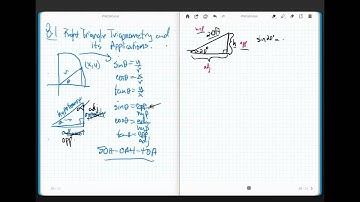 8.1 Right Triangle Trigonometry and
its Applications.
(x,y)
r
θ
sinθ = y/r
cosθ = x/r
tanθ = y/x
hypotenuse
adj
opp
sinθ = opp/hyp
cosθ = adj/hyp
tanθ = opp/adj
SOH-CAH-TOA
hyp
20ft
h
opp
20°
adj
sin20° =